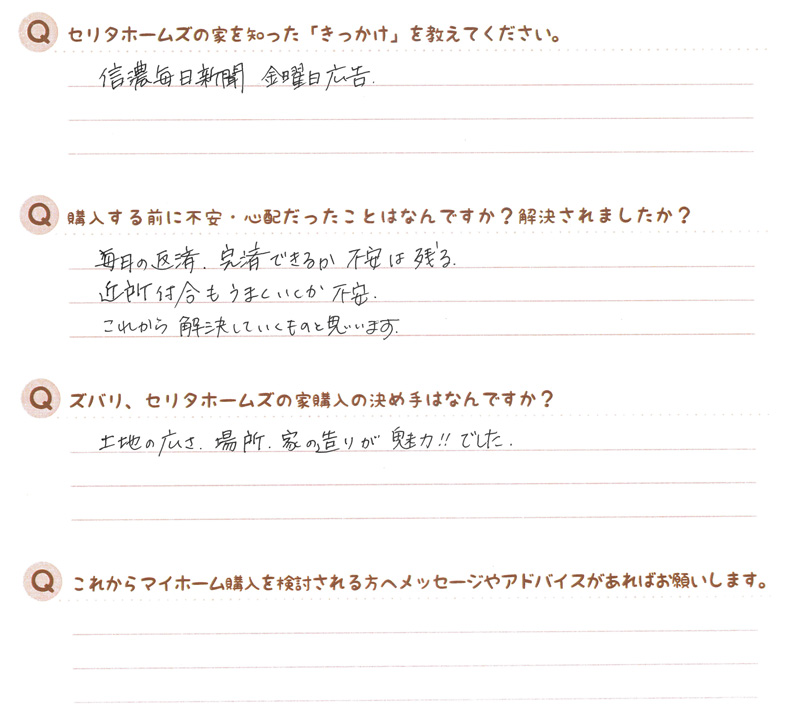 Q セリタホームズの家を知った「きっかけ」を教えてください。
信濃毎日新聞 金曜日広告.
Q 購入する前に不安・心配だったことはなんですか？解決されましたか？
毎日の返済. 完済できるか 不安は残る.
近所付合もうまくいくか 不安.
これから 解決していくものと思います.
Q ズバリ、セリタホームズの家購入の決め手はなんですか？
土地の広さ. 場所. 家の造りが 魅力!! でした.
Q これからマイホーム購入を検討される方へメッセージやアドバイスがあればお願いします。